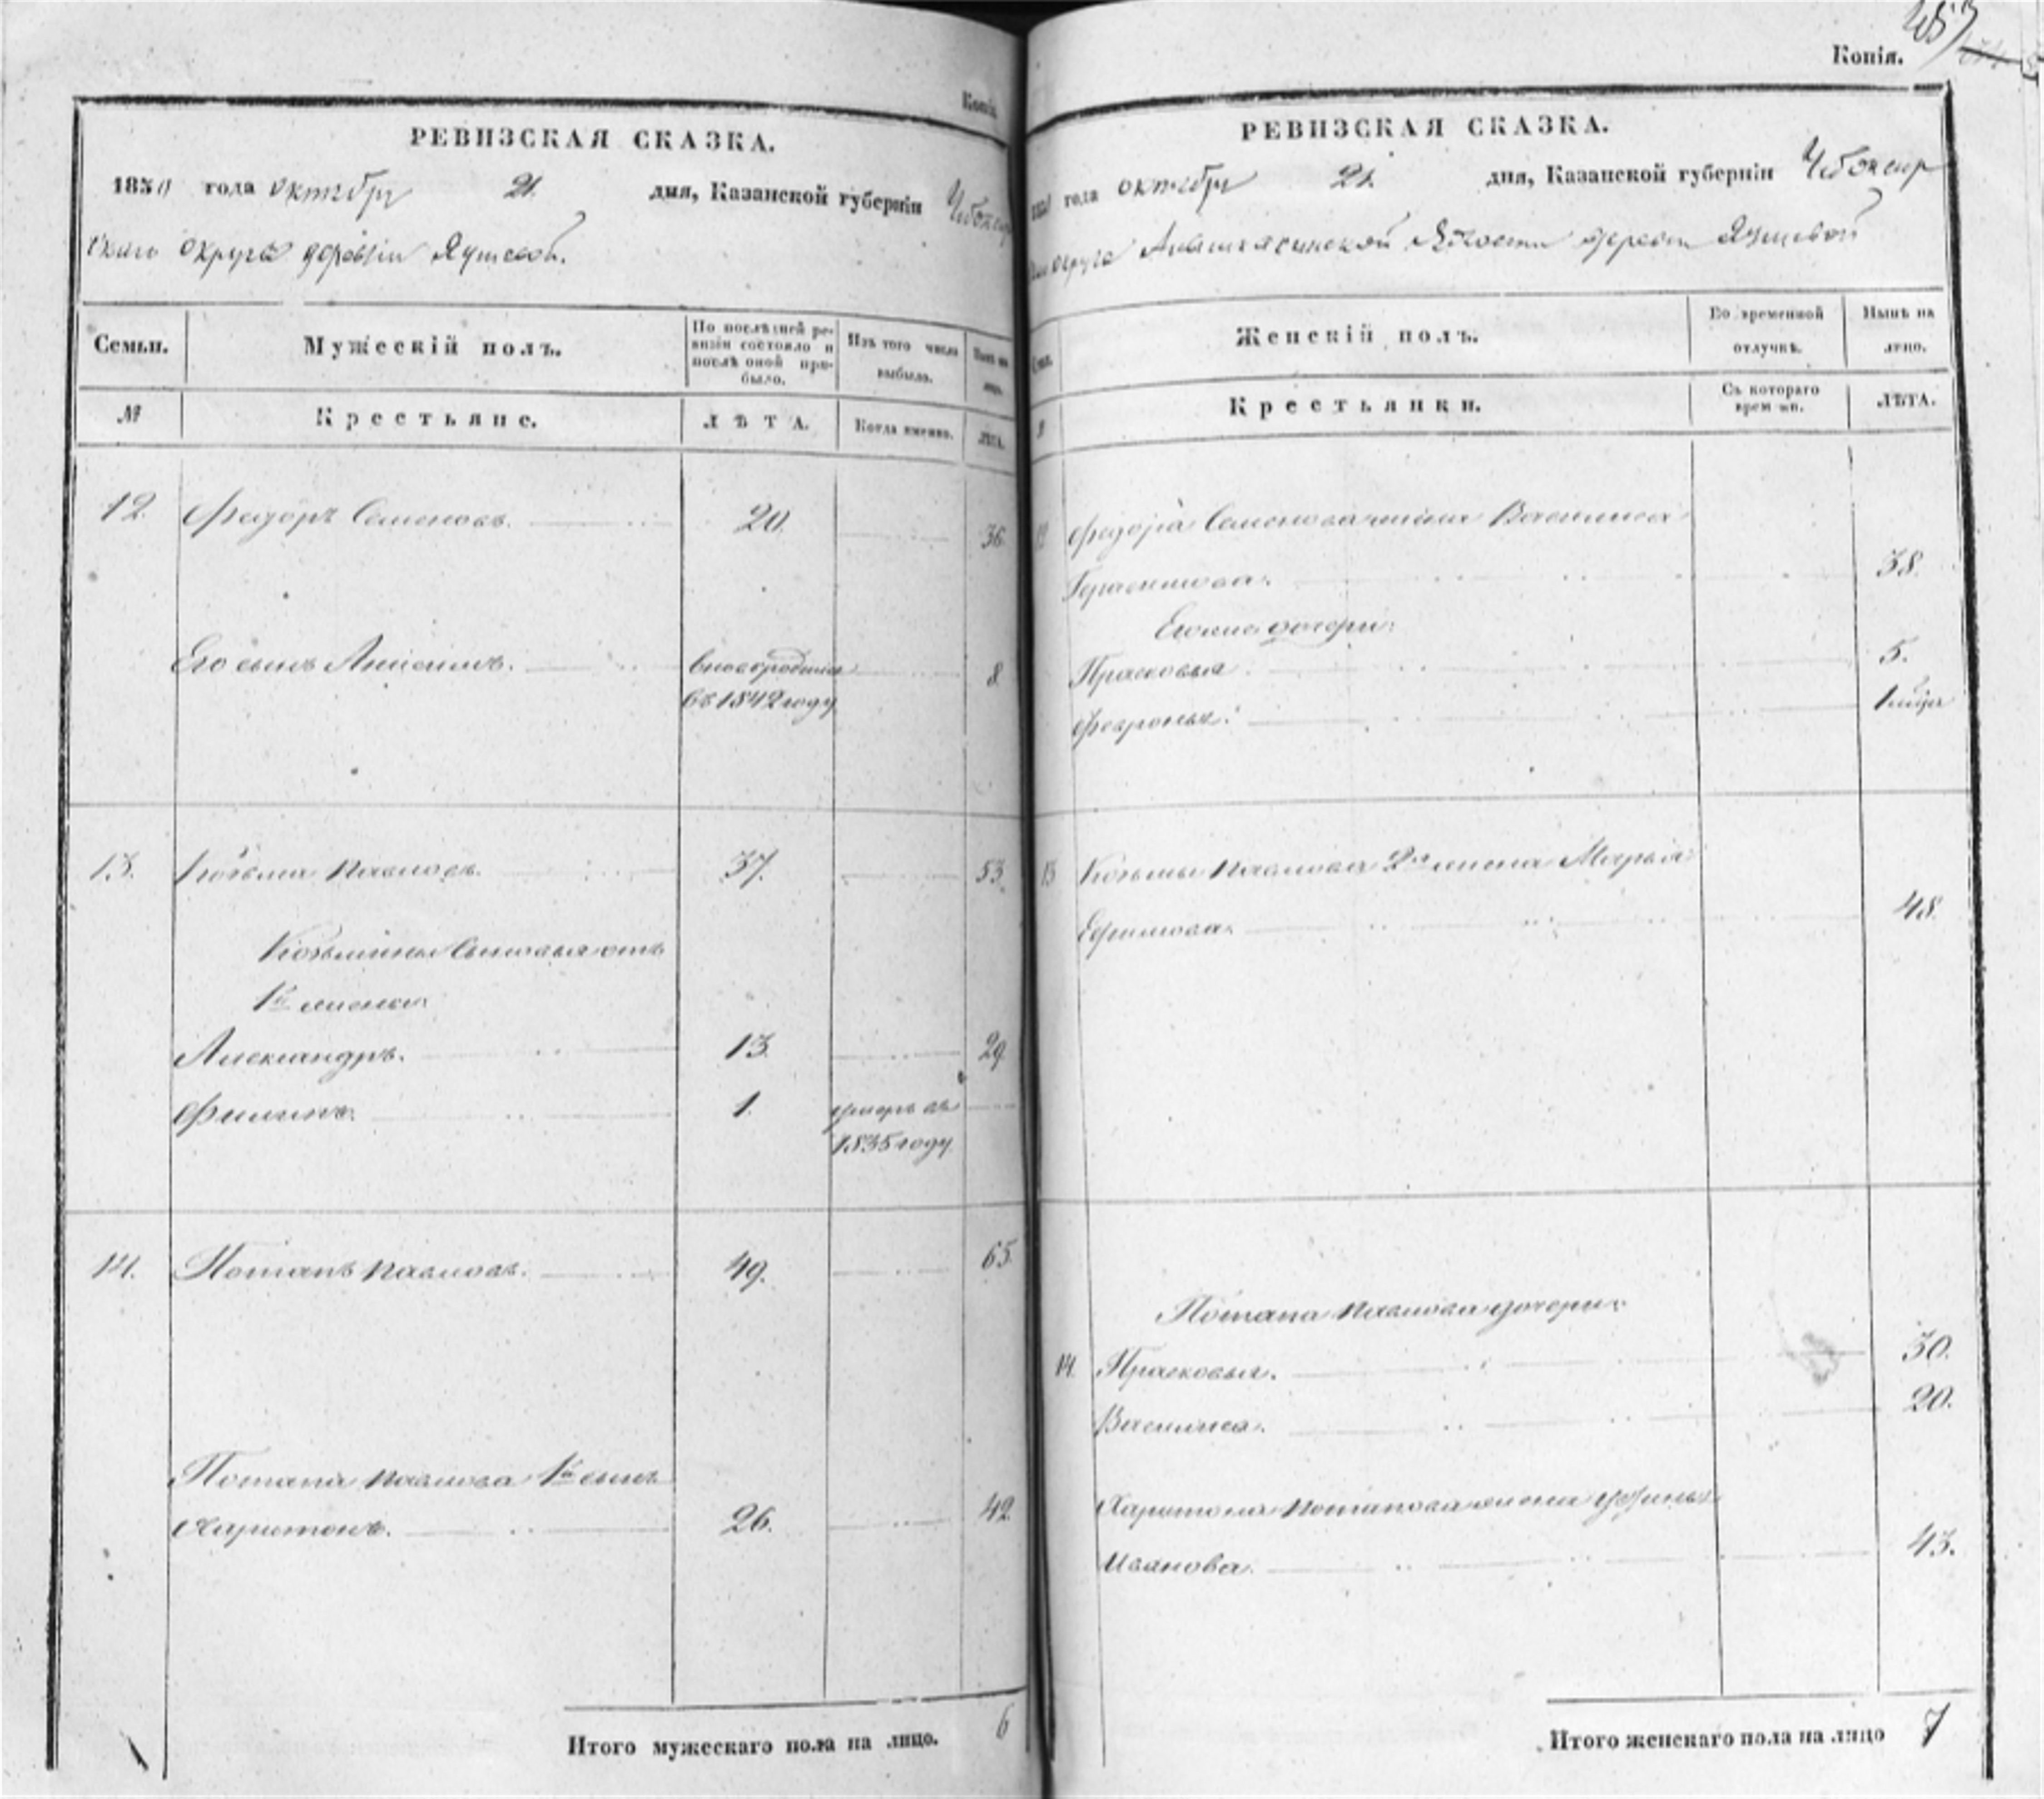 Копія
РЕВИЗСКАЯ СКАЗКА.
1850 года октября 21. дня, Казанской губерніи Чебоксар
скаго округа деревни Яушевой.
Семьи.
Мужескій полъ.
По послѣдней ре-
визіи состояло и
послѣ оной при-
было.
Изъ того числа
выбыло.
Нынѣ на
лицо.
№
Крестьяне.
ЛѢТА.
Когда именно.
ЛѢТА.
12. Федоръ Семеновъ. 20. 36.
Его сынъ Анисимъ. вновь родился 8
въ 1842 году
13. Козьма Павловъ. 37. 53.
Козьмины сыновья отъ
1й жены:
Александръ. 13. 29.
Филипъ. 1. умеръ въ
1835 году
14. Потапъ Павловъ. 49. 65.
Потапа Павлова 1й сынъ
Харитонъ. 26. 42.
Итого мужескаго пола на лицо. 6
253
Копія.
РЕВИЗСКАЯ СКАЗКА.
1850 года октября 21. дня, Казанской губерніи Чебоксар
округа волости деревни Яушевой
Сем.
Женскій полъ.
Во временной
отлучкѣ.
Нынѣ на
лицо.
№
Крестьянки.
Съ котораго
времени.
ЛѢТА.
12 Федора Семенова жена Василиса
Герасимова. 38.
Его же дочери:
Прасковья 5.
Февронья. 1 мѣца
13 Козьмы Павлова 2я жена Марья
Ефимова. 48.
Потапа Павлова дочери:
14. Прасковья. 30.
Василиса. 20.
Харитона Потапова жена
Иванова. 43.
Итого женскаго пола на лицо 7